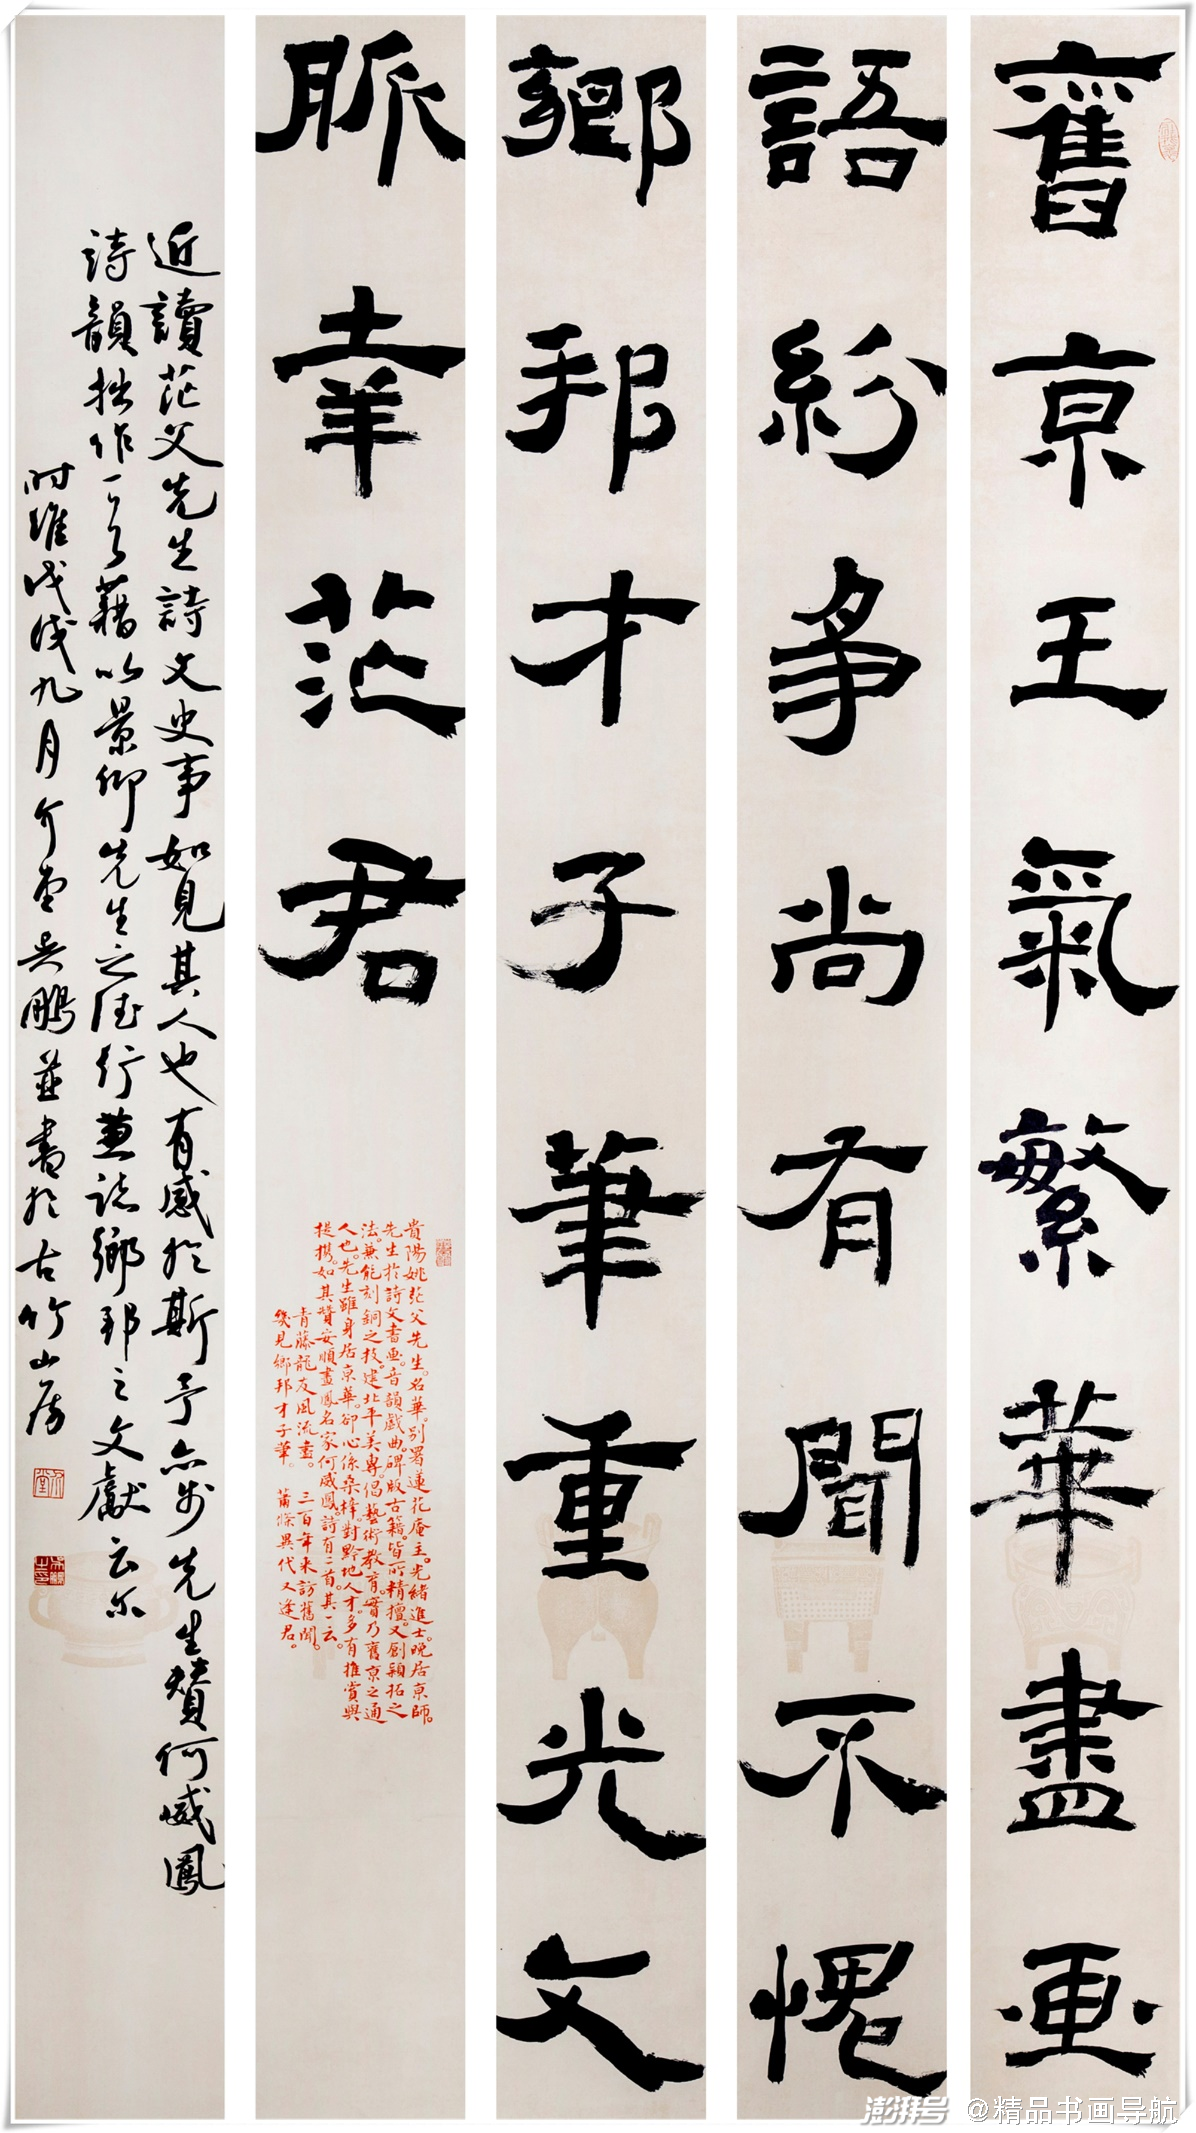 舊京王氣繁華盡畫
語紛爭尚有聞不愧
鄉邦才子筆重光文
脈幸茫君
貴陽姚茫父先生。名華。別署蓮花庵主。光緒進士。晚居京師。
先生於詩文書画。音韻戲曲。碑版古籍。皆所精擅。又創穎拓之
法。兼能刻銅之技。建北平美專。倡藝術教育。實乃舊京之通
人也。先生雖身居京華。卻心係桑梓。對黔地人才。多有推賞與
提攜。如其贊安順畫鳳名家何威鳳。詩有二首。其一云。
青藤龍友風流畫。三百年來訪舊聞。
幾見鄉邦才子筆。蕭條異代又逢君。
近讀茫父先生詩文史事如見其人也有感於斯予亦步先生贊何威鳳
詩韻拙作一首藉以景仰先生之德行兼誌鄉邦之文獻云尔
时維戊戌九月介堂吳鵬並書於古竹山房
澎湃号 @精品书画导航